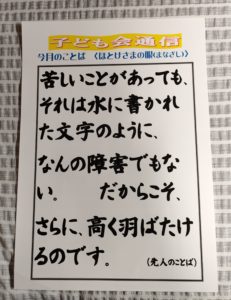 子ども会通信
今月のことば 《ほとけさまの眼(まなざし)
苦しいことがあっても、
それは水に書かれ
た文字のように、
なんの障害でもな
い。 だからこそ、
さらに、高く羽ばたけ
るのです。
(先人のことば)